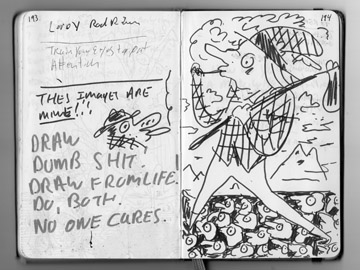 193
Train your eyes to put
Attention
THES IMAGES ARE
MINE!!!
DRAW
DUMB SHIT.
DRAW FROM LIFE.
DO, BOTH.
NO ONE CURES.
194